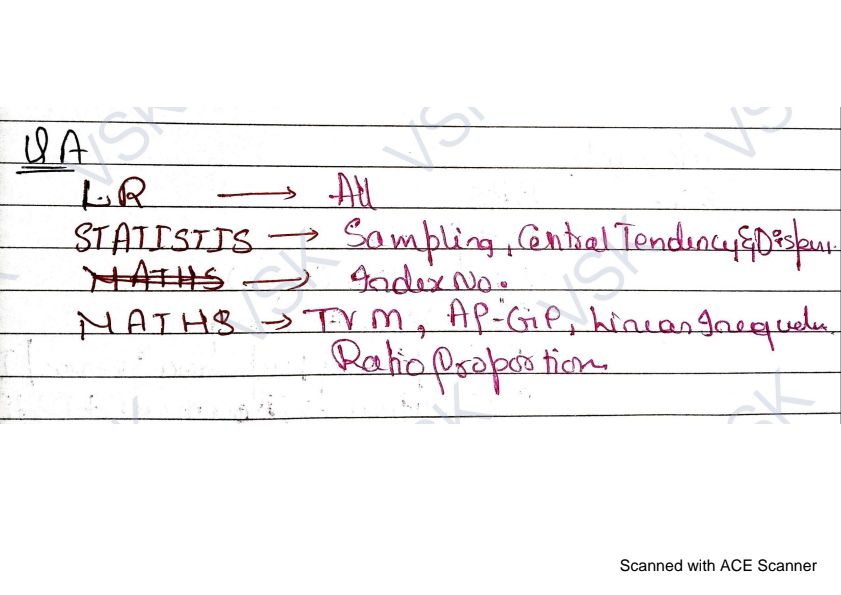 QA
L.R → All
STATISTIS → Sampling, Central Tendency & Dispers.
MATHS → Index No.
MATHS → TVM, AP-GP, Linear Inequ
Ratio Proportion
VSK VSK VSK
VSK VSK
VSK VSK
Scanned with ACE Scanner